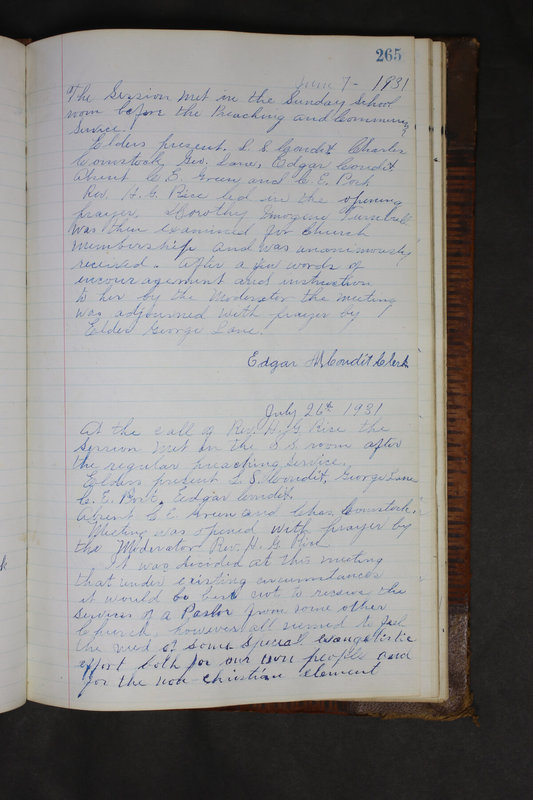 265
June 7 - 1931
The Session met in the Sunday School
room before the Preaching and Communion
Service.
Elders present. L S Condit Charles
Comstock, Geo. Lane, Edgar Condit
Absent C E. Green and C. E. Pork
Rev. H. G. Rice led in the opening
prayer. Dorothy Imogene
was then examined for Church
membership and was unanimously
received. After a few words of
encouragement and instruction
to her by the Moderator the meeting
was adjourned with prayer by
Elder George Lane.
Edgar Condit Clerk
July 26th 1931
At the call of Rev. H. G Rice the
Session met in the S S room after
the regular preaching service.
Elders present L. S. Condit, George Lane
C. E. Edgar Condit.
Absent C E Green and Chas. Comstock.
Meeting was opened with prayer by
the Moderator Rev. H. G Rice
It was decided at this meeting
that under existing circumstances
it would be best not to receive the
Services of a Pastor from some other
Church, however all seemed to feel
the need of some special evangelistic
effort both for our own people and
for the non Christian element